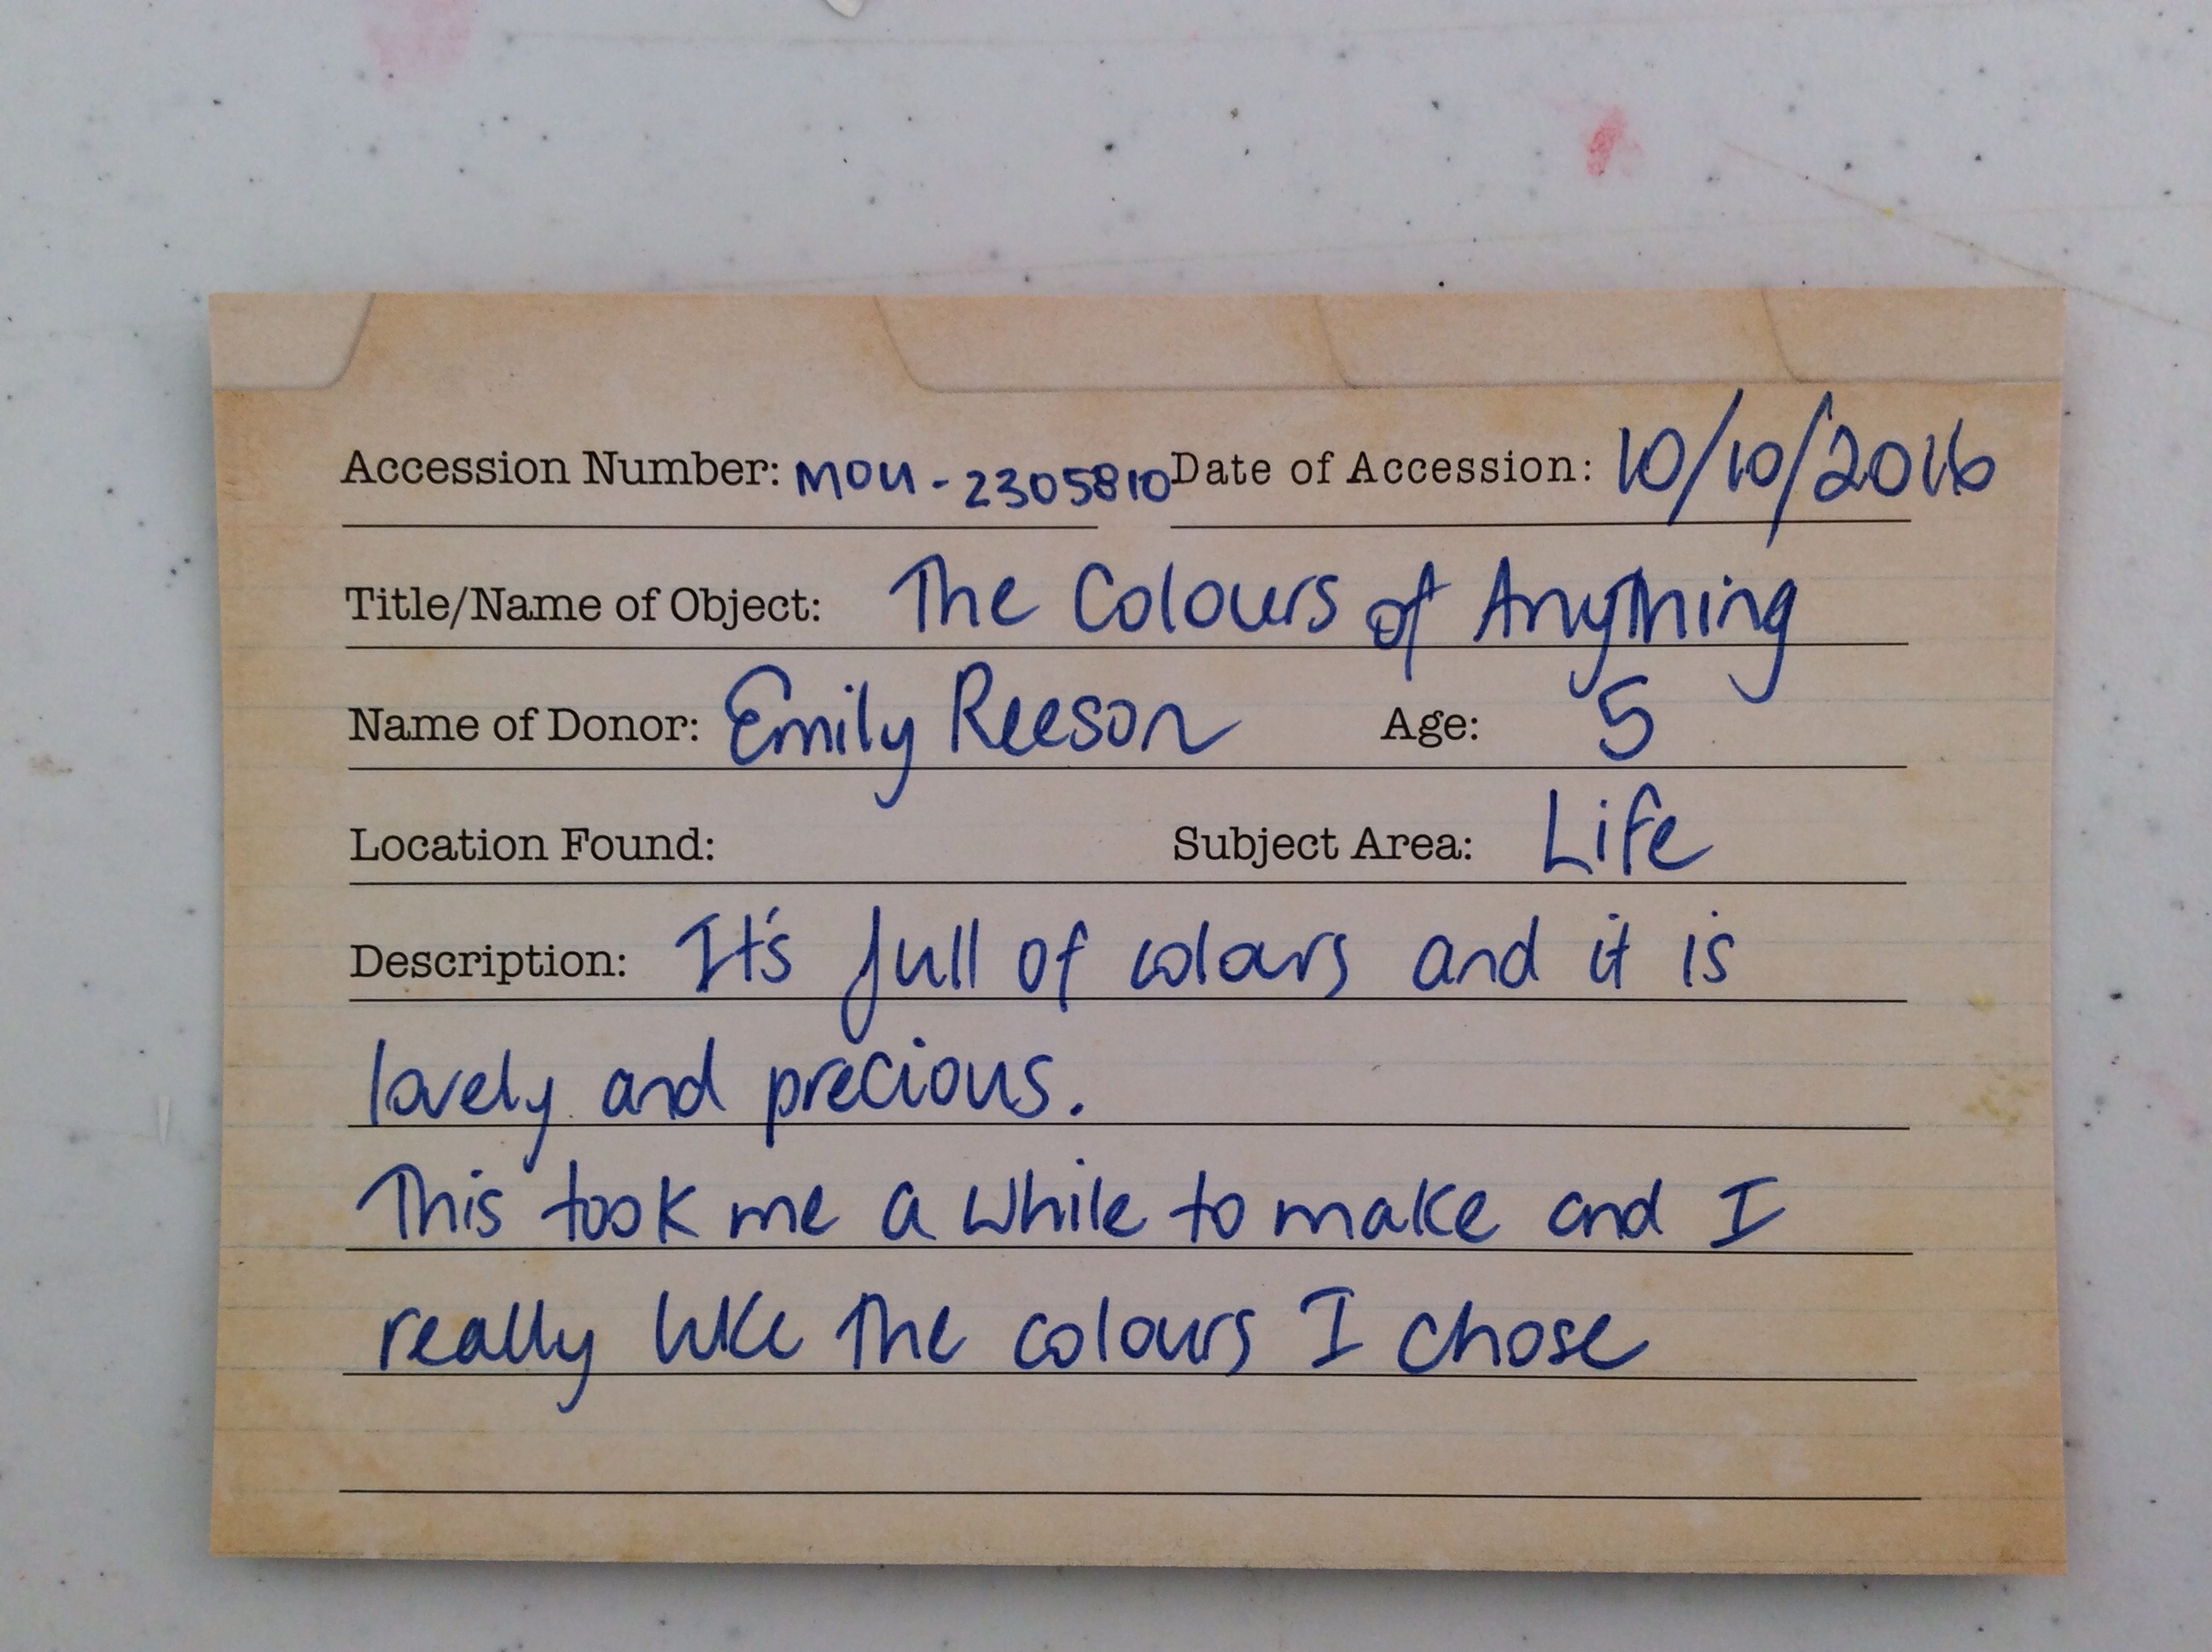 Accession Number: MOU-2305810 Date of Accession: 10/10/2016
Title/Name of Object: The Colours of Anything
Name of Donor: Emily Reeson Age: 5
Location Found: Subject Area: Life
Description: It's full of colours and it is
lovely and precious.
This took me a while to make and I
really like the colours I chose